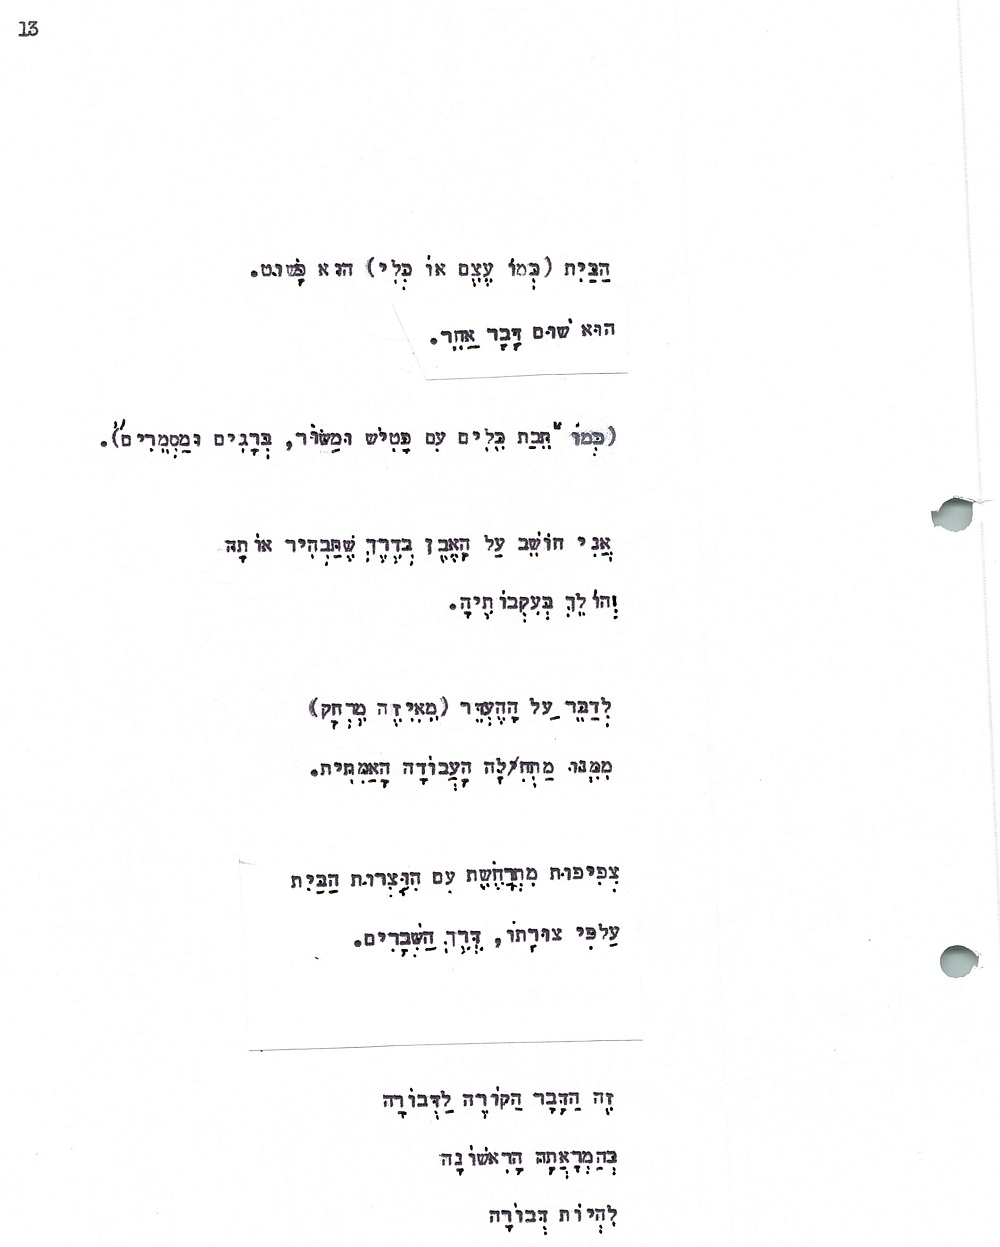 13
הַבַּיִת (כְּמוֹ עֶצֶם אוֹ כְּלִי) הוּא פָּשׁוּט.
הוּא שׁוּם דָּבָר אַחֵר.
(כְּמוֹ "תֵּבַת כֵּלִים עִם פָּטִישׁ וּמַשּׂוֹר, בְּרָגִים וּמַסְמֵרִים").
אֲנִי חוֹשֵׁב עַל הָאֶבֶן בְּדֶרֶךְ שֶׁתַּבְהִיר אוֹתָהּ
וְהוֹלֵךְ בְּעִקְבוֹתֶיהָ.
לְדַבֵּר עַל הָהֶעְדֵּר (מֵאֵיזֶה מֶרְחָק)
מִמֶּנּוּ מַתְחִילָה הָעֲבוֹדָה הָאֲמִתִּית.
צְפִיפוּת מִתְרַחֶשֶׁת עִם הִוָּצְרוּת הַבַּיִת
עַלפִּי צוּרָתוֹ, דֶּרֶךְ הַשְּׁבָרִים.
זֶה הַדָּבָר הַקּוֹרֶה לַדְּבוֹרָה
בְּהַמְרָאָתָהּ הָרִאשׁוֹנָה
לִהְיוֹת דְּבוֹרָה